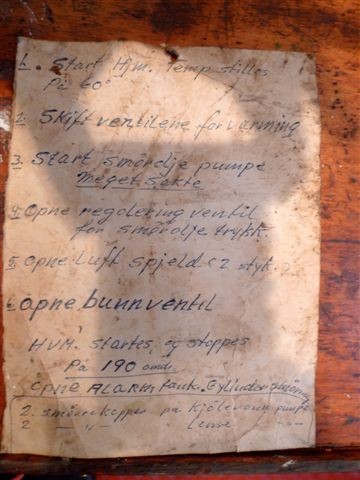 1. Start Hjm. Temp stilles
På 60°
2. Skift ventilene for varming
3. Start smördje pumpe
meget sakte
4. Opne regolering ventil
for smördje trykk
5. Opne Luft spjeld (2 styk.)
6. Opne bunnventil
HVM. startes, og stoppes
På 190 omdr.
Opne ALARM tank. Sylinder smöring
2. smörekopper på Kjölevann pumpe
2 -"- " Lense -"-